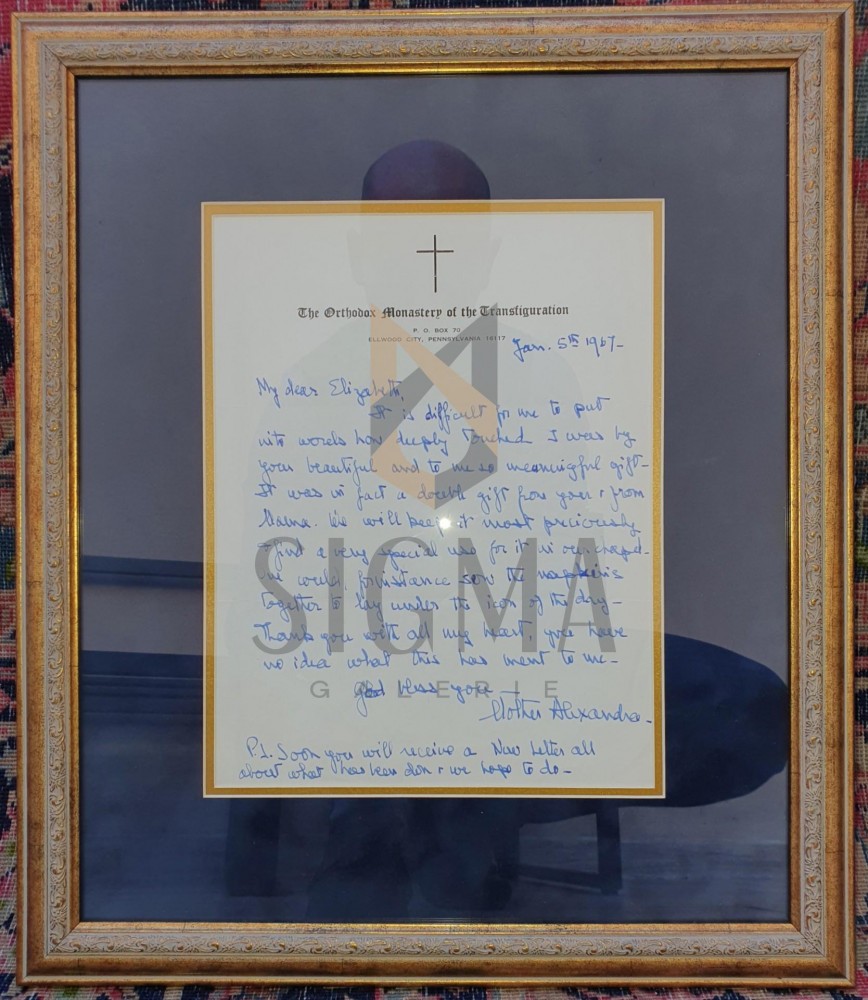 The Orthodox Monastery of the Transfiguration
P. O. BOX 70
ELLWOOD CITY, PENNSYLVANIA 16117
Jan. 5th 1967-
My dear Elizabeth,
It is difficult for me to put
into words how deeply touched I was by
your beautiful and to me so meaningful gift-
It was in fact a double gift from you & from
Mama. We will keep it most preciously
find a very special use for it in our chapel-
we could, forinstance sow the napkins
together to lay under the icon of the day-
Thank you with all my heart, you have
no idea what this has ment to me-
God bless you -
Mother Alexandra-
P.S. Soon you will receive a New Letter all
about what has been don & we hope to do-
SIGMA
GALERIE